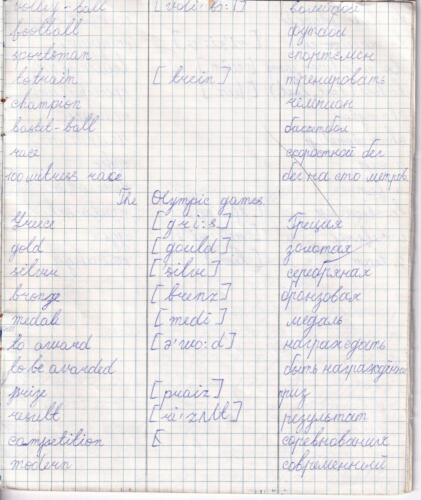 volley-ball [voli:bo:l] волейбол
football футбол
sportsman спортсмен
to train [trein] тренировать
champion чемпион
basket-ball баскетбол
race скоростной бег
100 metress race бег на сто метров
The Olympic games
Greece [gri:s] Греция
gold [gould] золотая
silver [silve] серебряная
bronze [brenz] бронзовая
medal [medl] медаль
to award [ə'wo:d] награждать
to be awarded быть награждённым
prize [praiz] приз
result результат
competition [ соревнования
modern современный